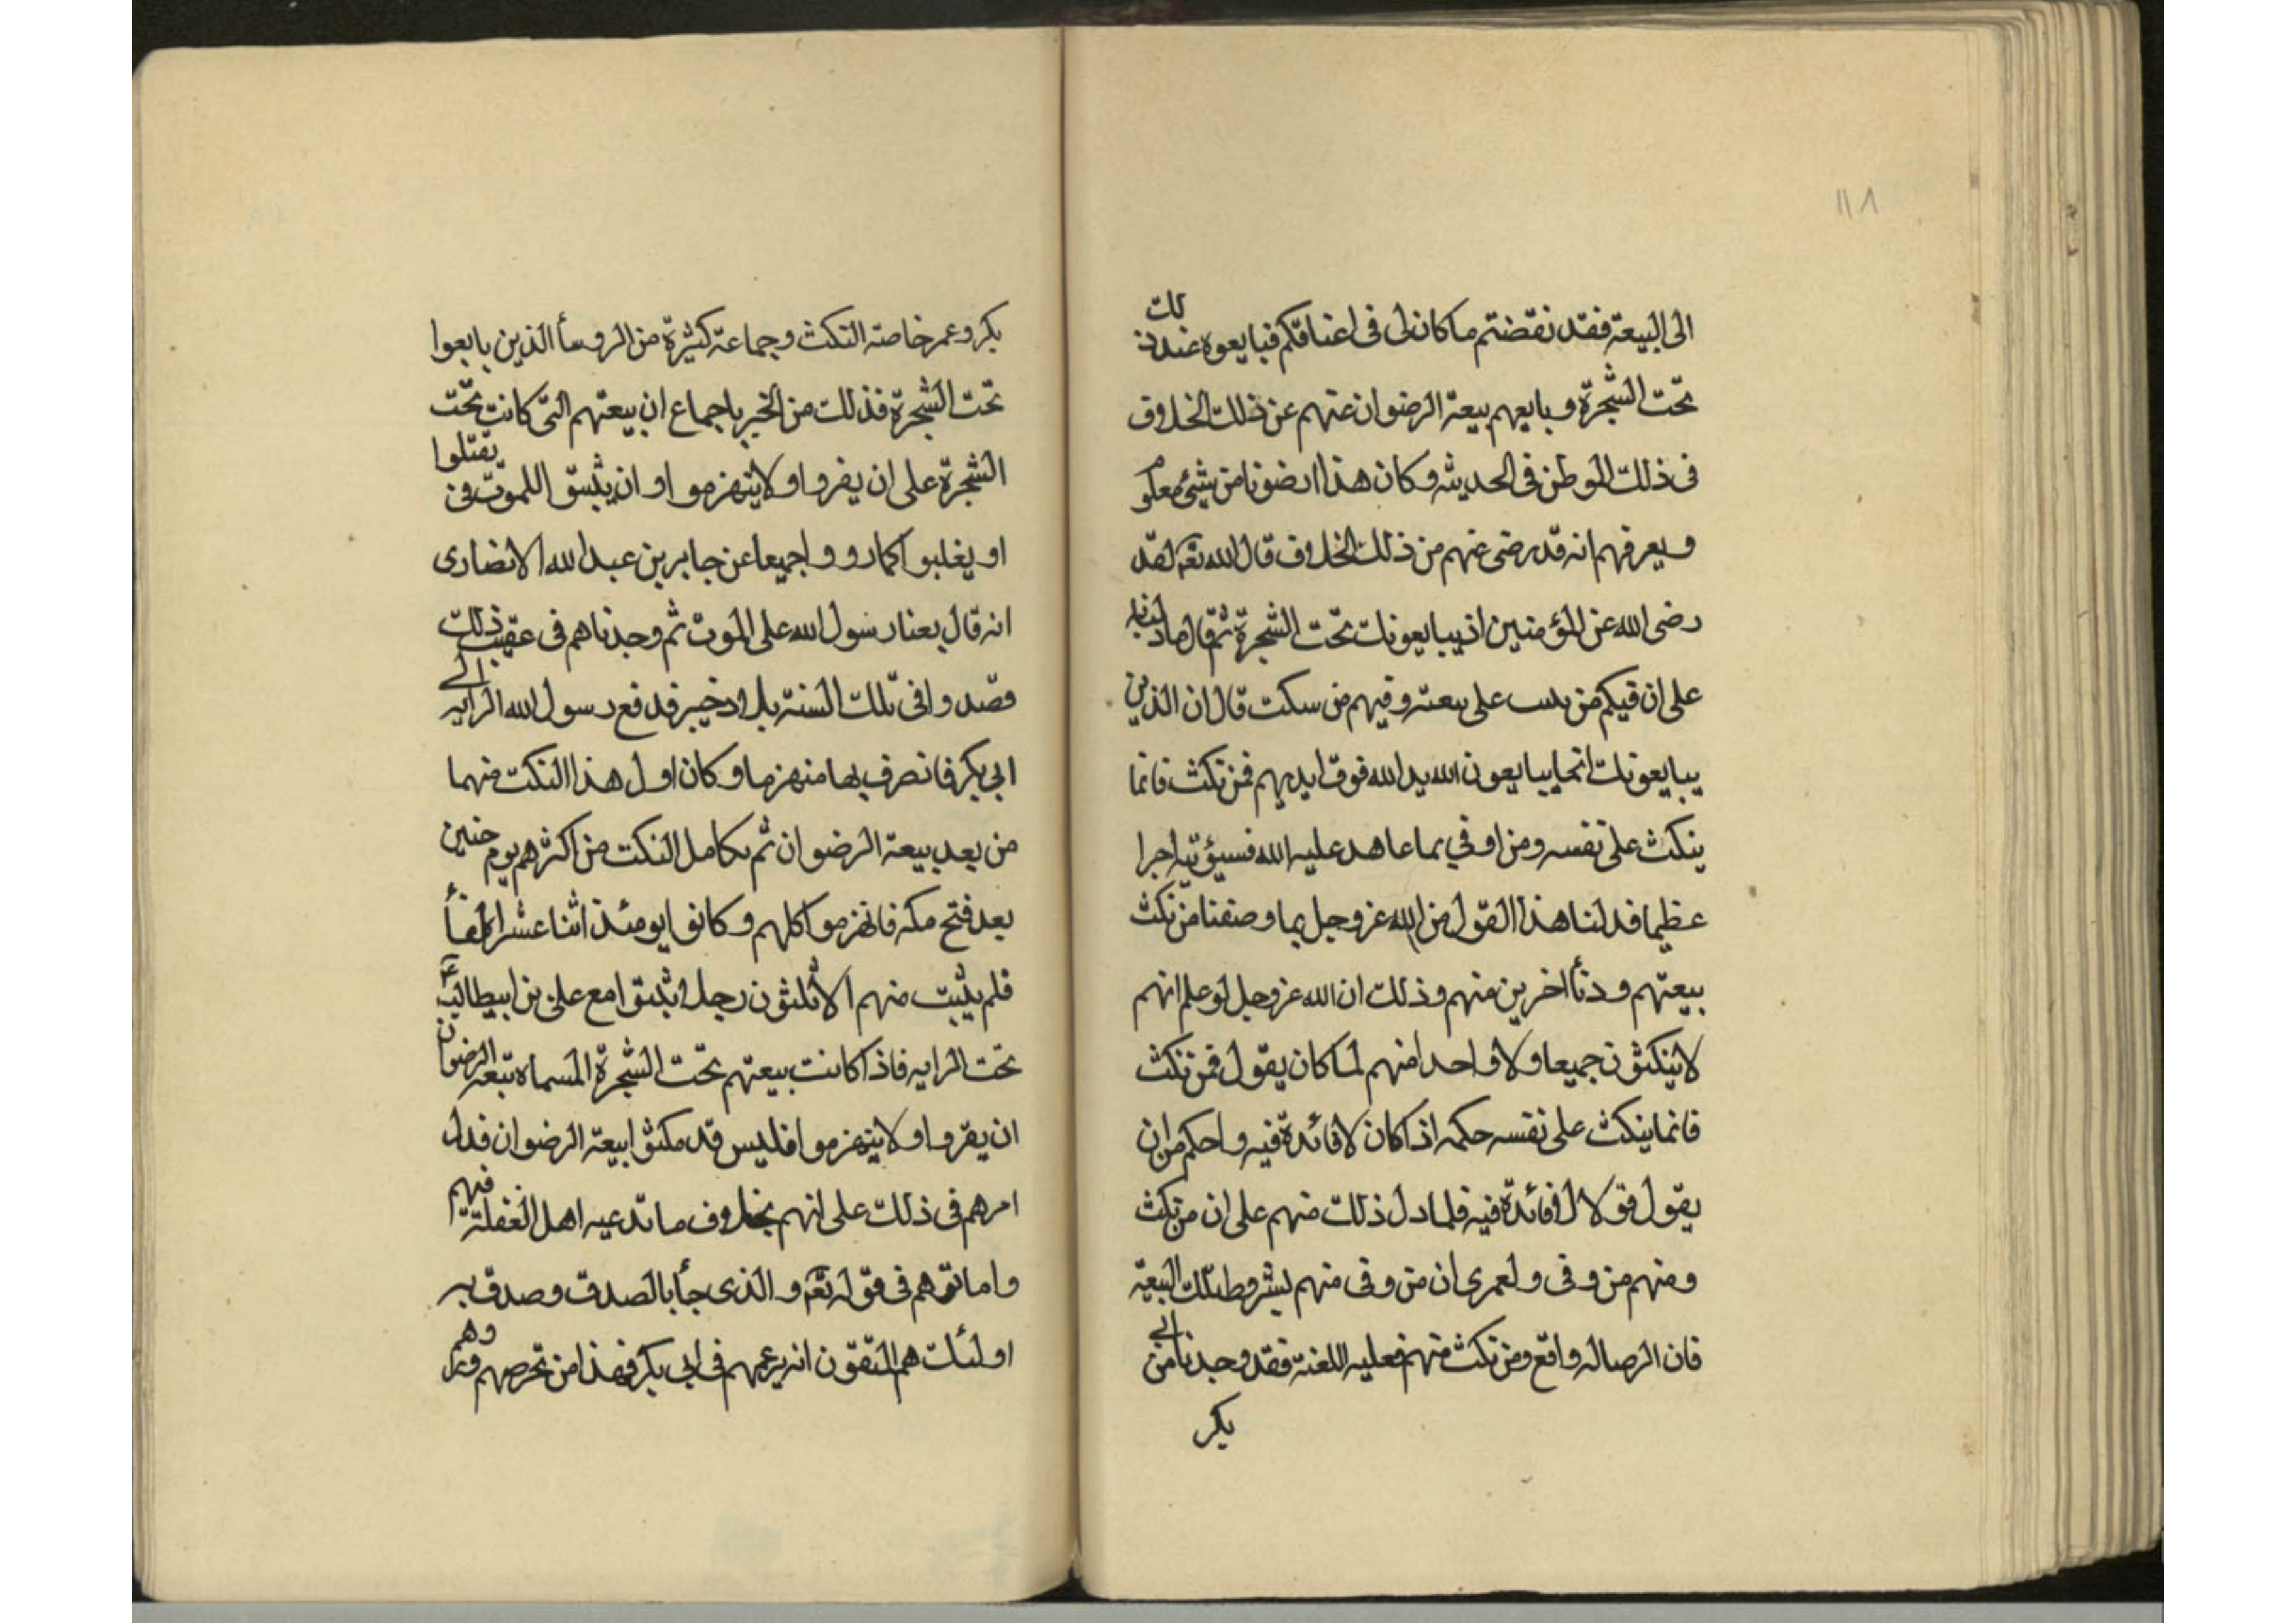 ١١٨
الى البيعة فقد نقضتم ما كان لى فى اعناقكم فبايعوه عند ذلك
تحت الشجرة وبايعهم بيعة الرضوان عنهم عن ذلك الخلاف
فى ذلك الموطن فى الحديثه وكان هذا الرضوانا من شئ معلوم
ويعرفهم انه قد رضى عنهم من ذلك الخلاف قال الله تعم لقد
رضى الله عن المؤمنين اذ يبايعونك تحت الشجرة ثم قال
على ان فيكم من على بيعته وفيهم من سكت قال ان الذين
يبايعونك انما يبايعون الله يد الله فوق ايديهم فمن نكث فانما
ينكث على نفسه ومن اوفي بما عاهد عليه الله فسيؤتيه اجرا
عظيما فدلنا هذا القول من الله عز وجل بما وصفنا من نكث
بيعتهم و اخرين منهم وذلك ان الله عز وجل لو علم انهم
لا ينكثون جميعا ولا واحدا منهم لما كان يقول فمن نكث
فانما ينكث على نفسه حكمه اذا كان لا فائدة فيه واحكم من ان
يقول قولا لا فائدة فيه فلما دل ذلك منهم على ان من نكث
ومنهم من وفى ولعمرى ان من وفى منهم بشروط تلك البيعة
فان الرضا له واقع ومن نكث منهم فعليه اللغنة فقد وجدنا من ابى
بكر
بكر وعمر خاصة النكث وجماعة كثيرة من الروسأ الذين بايعوا
تحت الشجرة فذلك من الخبر باجماع ان بيعتهم التى كانت تحت
الشجرة على ان يفروا ولا ينهزموا وان للموت يقتلوا
او يغلبوا كما رووا جميعا عن جابر بن عبد الله الانصارى
انه قال بعنا رسول الله على الموت ثم وجدناهم فى عقيب ذلك
وقد وافى تلك السنة بلاد خيبر فدفع رسول الله الرايه الى
ابى بكر فانصرف بها منهزما وكان اول هذا النكث منهما
من بعد بيعة الرضوان ثم تكامل النكث من اكثرهم يوم حنين
بعد فتح مكه فانهزموا كلهم وكانوا يومئذ اثنا عشر الفأ
فلم يثبت منهم الا ثلثون رجلا مع على بن ابيطالب
تحت الرايه فاذا كانت بيعتهم تحت الشجرة المسماه بيعة الرضوان
ان يفروا ولا ينهزموا فليس قد مكثوا بيعة الرضوان فدل
امرهم فى ذلك على انهم بخلاف ما تدعيه اهل الغفلة فيهم
واما توهم فى قوله تعم والذى جأ بالصدق وصدق به
اولئك هم المتقون انه بزعمهم فى ابى بكر فهذا من تخرصهم وهم